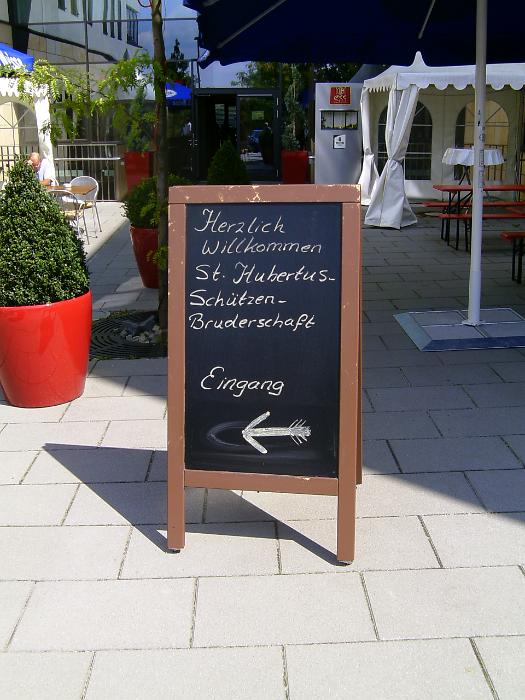 Herzlich
Willkommen
St. Hubertus-
Schützen-
Bruderschaft
Eingang